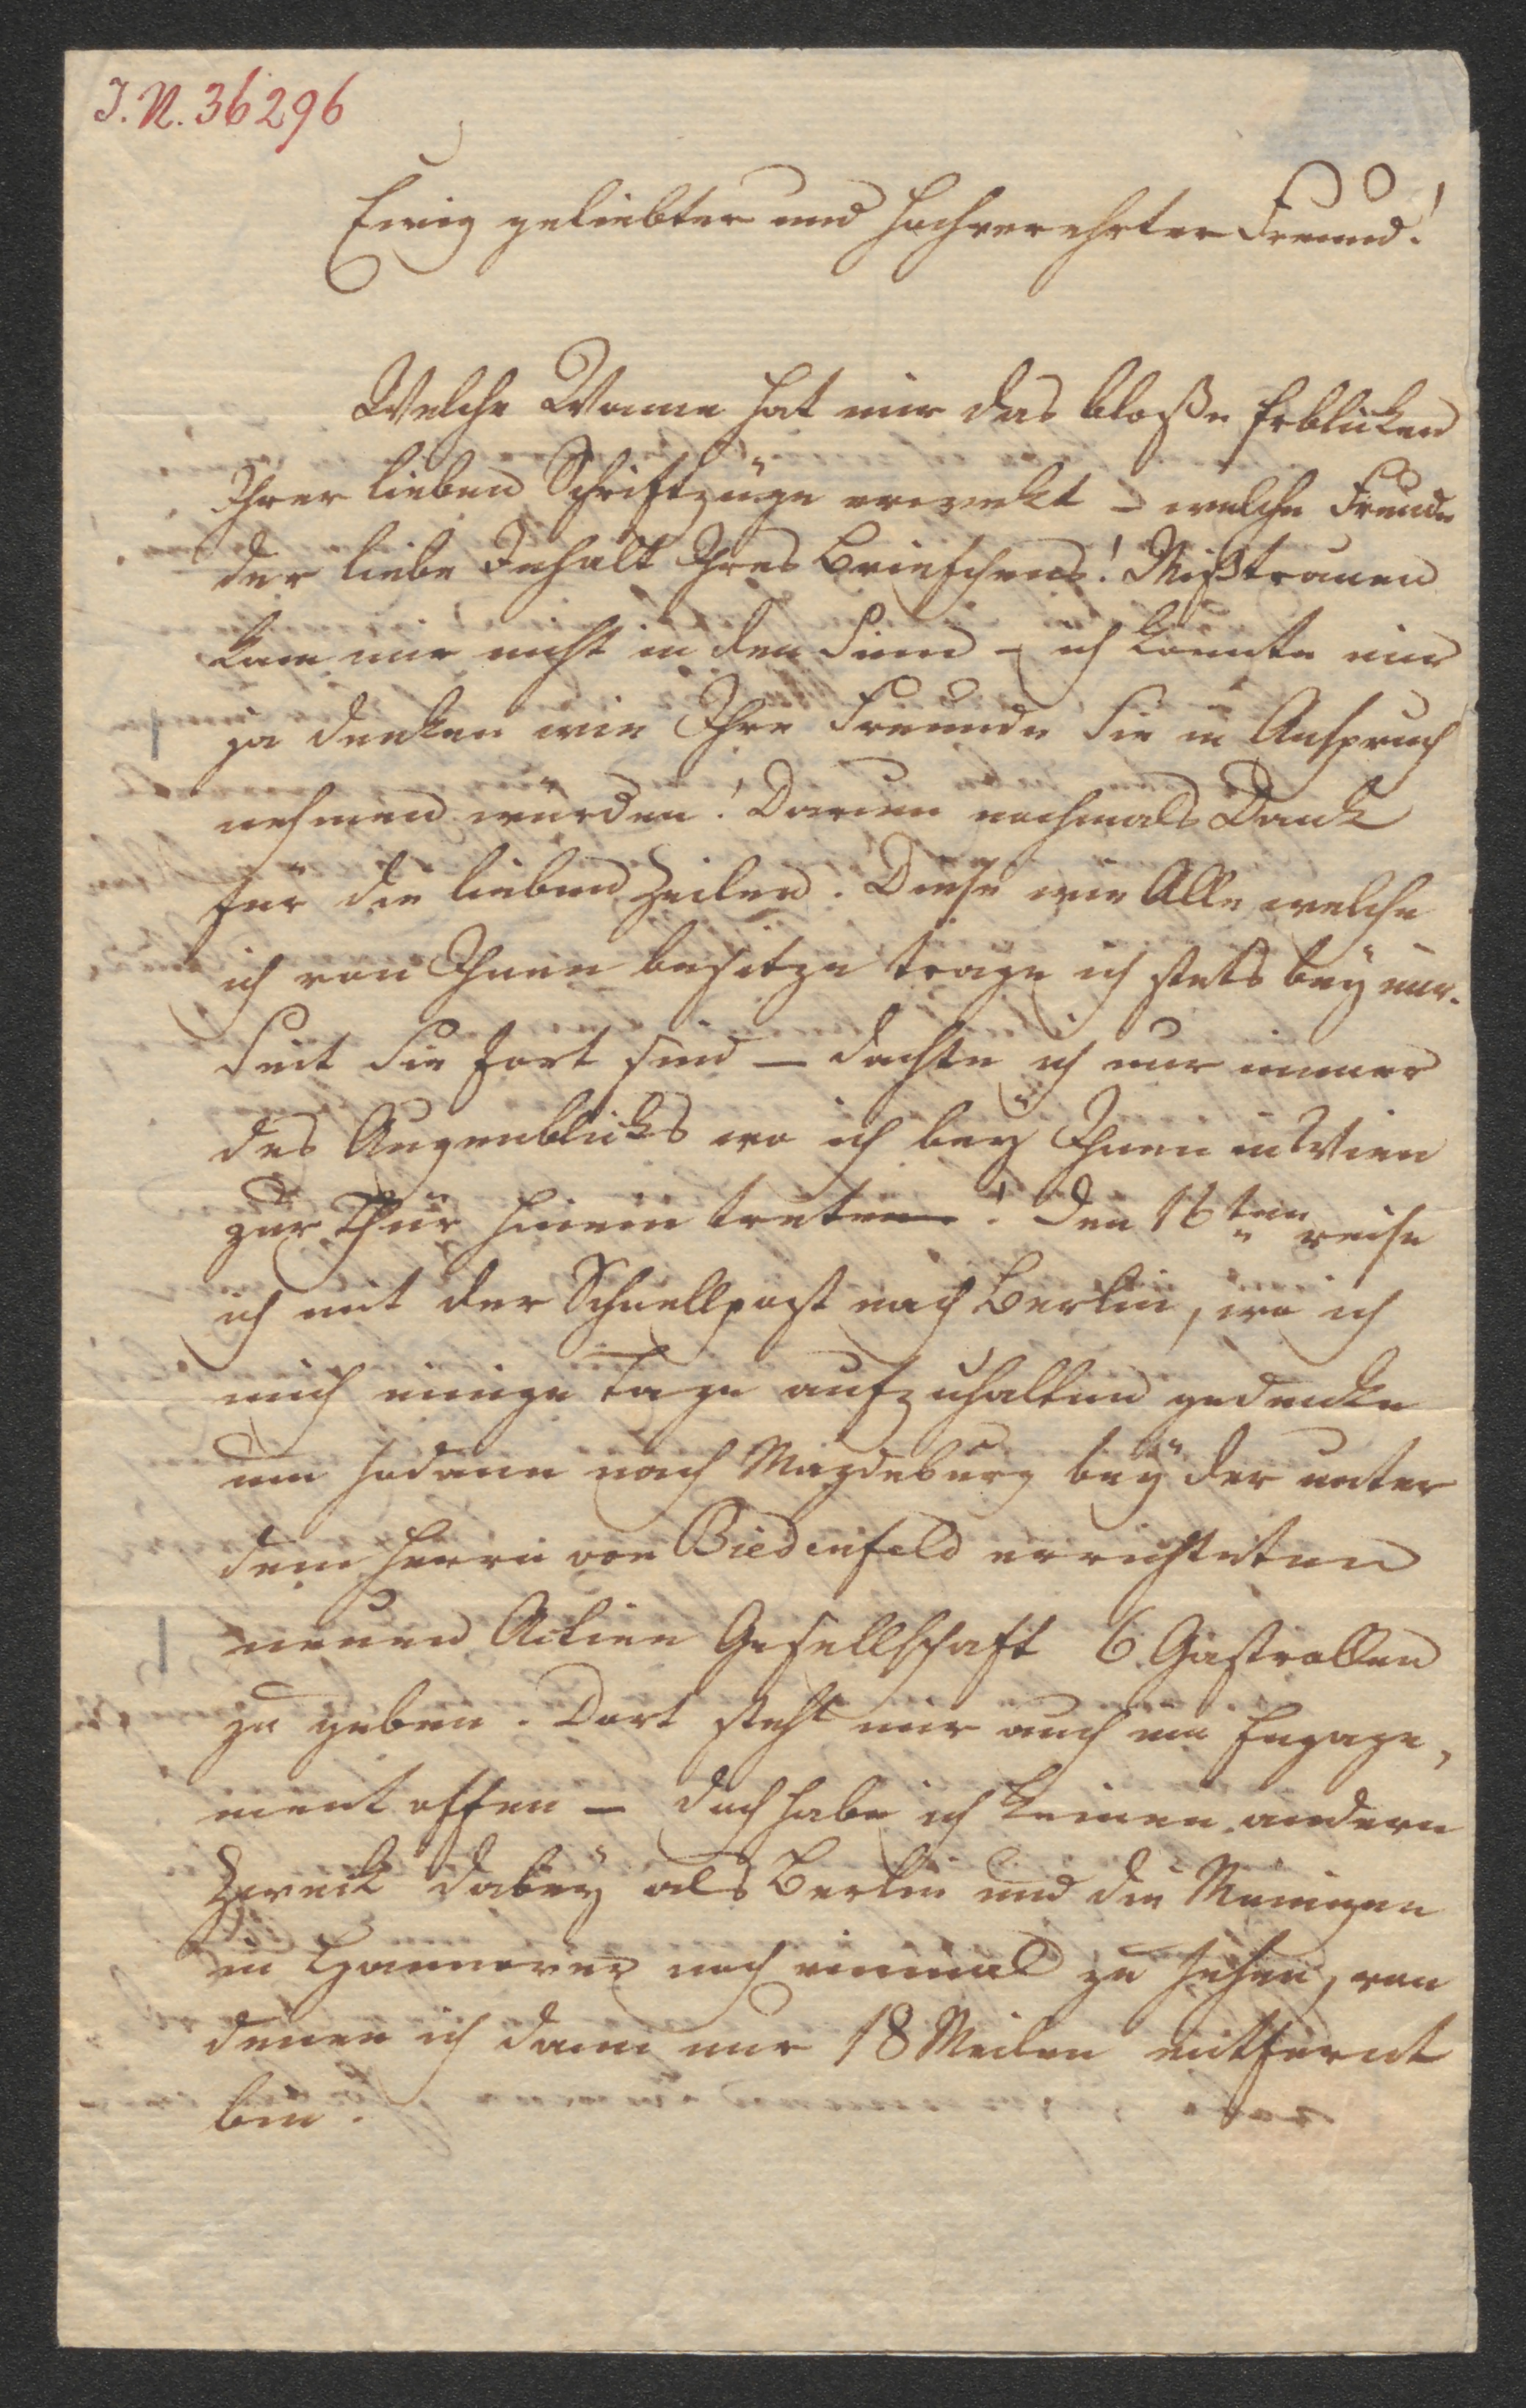 J. N. 36296
Ewig geliebter und hochverehrter Freund!
Welche Wonne hat mir das bloße Erblicken
Ihrer lieben Schriftzüge erwekt – welche Freude
der liebe Inhalt Ihres Briefchens! Mißtrauen
kam mir nicht in den Sinn – ich konnte mir
ja denken wie Ihre Freunde Sie in Anspruch
nehmen würden! Darum nochmals Dank
für die lieben Zeilen. Diese wie Alle welche
ich von Ihnen besitze trage ich stets beÿ mir.
Seit Sie fort sind – dachte ich nur immer
des Augenbliks wo ich beÿ Ihnen in Wien
zur Thür hinein treten! Den 16ten reise
ich mit der Schnellpost nach Berlin, wo ich
mich einige Tage aufzuhalten gedenke
um sodann nach Magdeburg beÿ der unter
dem Herrn von Biedenfeld errichteten
neuen Actien Gesellschaft 6 Gastrollen
zu geben. Dort steht mir auch ein Engage,
ment offen – doch habe ich keinen andern
Zweck dabeÿ als Berlin und die Meinigen
in Hannover noch einmal zu sehen, von
denen ich dann nur 18 Meilen entfernt
bin.